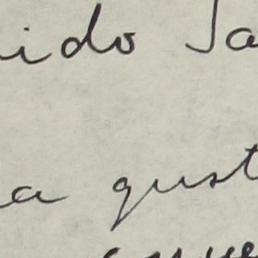 ido Ja
a gust